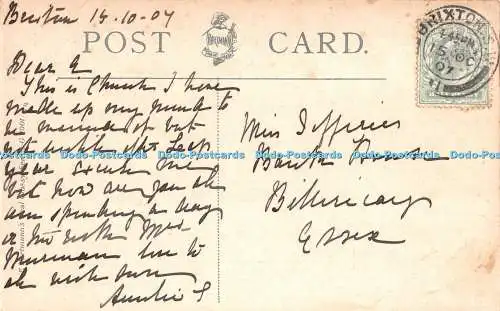 Brixton 15-10-07
POST CARD.
BRIXTON
OC
07
Dear A
This is Church I have
made up my mind to
be married at but
not until the Leap
year
but how are you all
am spending a day
or two with Mrs
love to
all with own
Auntie S
Miss Jefferies
Bank House
Billericay
Essex
Dodo-Postcards Dodo-Postcards Dodo-Postcards Dodo-Postcards Dodo-Postcards Dodo-Postcards